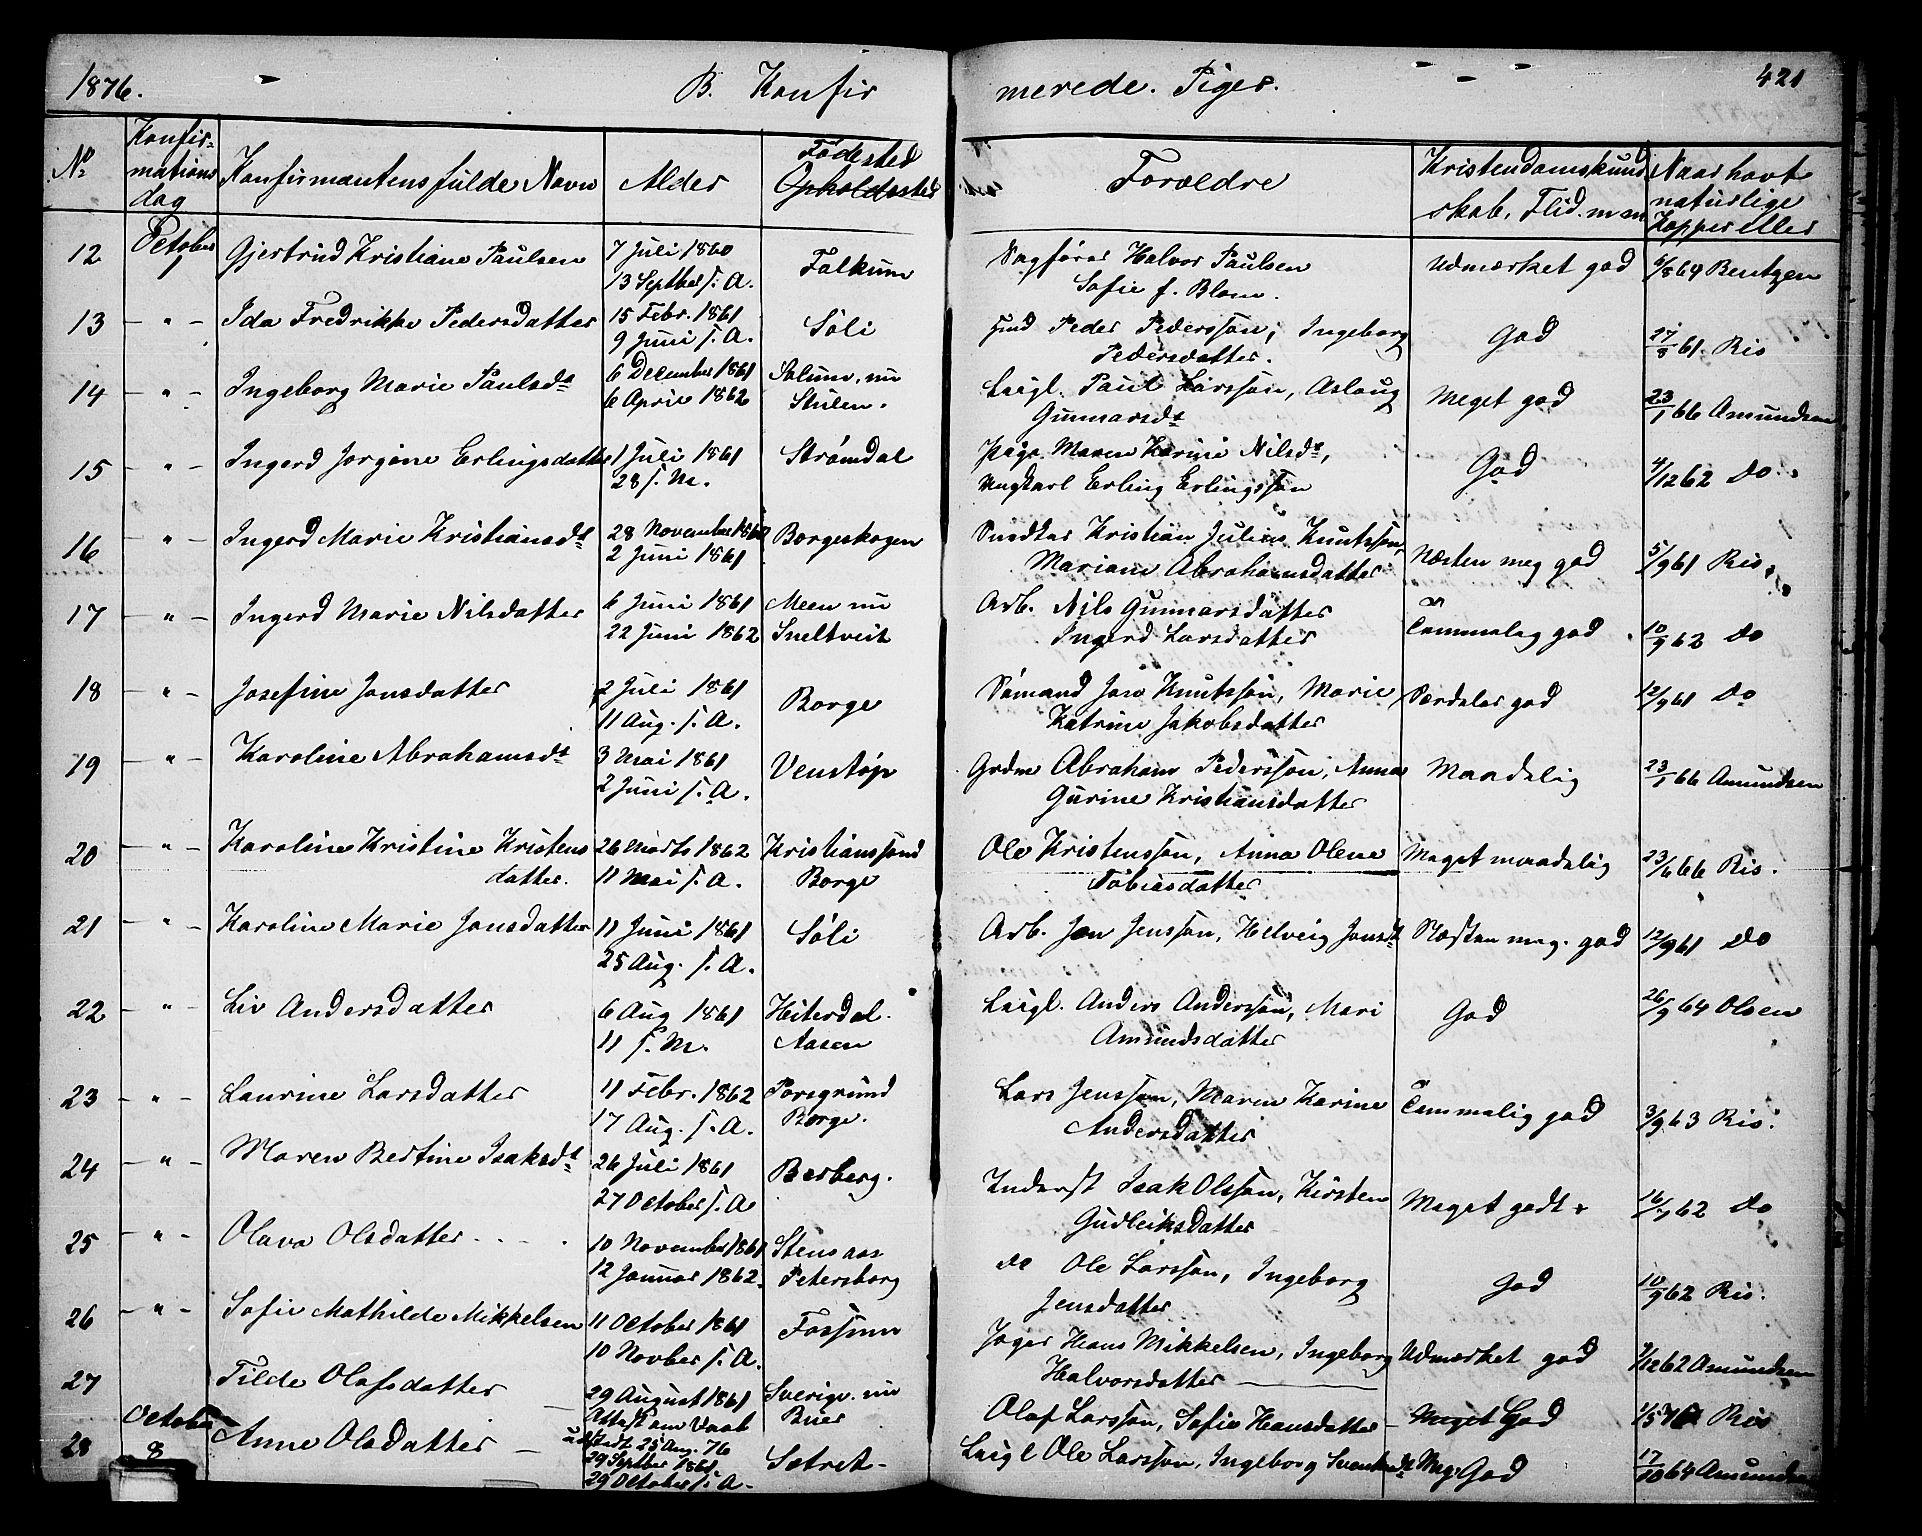 1876. B. Konfir merede. Piger. 421
No Konfirmations dag Konfirmantens fulde Navn Alder Fødested Opholdssted Forældre Kristendomskundskab, Flid. m m Naar havt naturlige Kopper eller
12 October 1 Gjertrud Kristiane Paulsen 7 Juli 1860 Falkum Sagfører Halvor Paulsen Udmærket god 6/8 64 Bentzen
13 Septber s. A. Sofie f. Blom.
13 - " - Ida Fredrikke Pedersdatter 15 Febr. 1861 Søli Peder Pedersson, Ingeborg God 27/8 61. Ris
9 Juni s. A. Pedersdatter.
14 - " - Ingeborg Marie Paulsdt 6 December 1861 Solum, nu Leigl. Paul Larsson, Aslaug Meget god 23/1 66 Amundsen
6 April 1862 Skulen. Gunnarsdt
15 - " - Ingerd Jorgine Erlingsdatter 1 Juli 1861 Strømdal Pige Maren Karine Nilsdt, God 4/12 62 Do
28 s. M. Ungkarl Erling Erlingsson
16 - " - Ingerd Marie Kristiansdt 28 November 1860 Borgeskogen Kristian Julius Knutsson, Næsten meg god 5/9 61 Ris
2 Juni 1861 Mariane Abrahamsdatter
17 - " - Ingerd Marie Nilsdatter 6 Juni 1861 Meen nu Arb. Nils Gunnarsdatter Temmelig god 10/9 62 Do
22 Juni 1862 Sneltveit Ingerd Larsdatter
18 - " - Josefine Jonsdatter 2 Juli 1861 Borge Sømand Jon Knutsson, Marie Særdeles god 12/9 61 Do
11 Aug. s. A. Katrine Jakobsdatter
19 " - Karoline Abrahamsdt 3 Mai 1861 Venstøp Grdm Abraham Pedersson, Anna Maadelig 23/1 66 Amundsen
2 Juni s. A. Gurine Kristiansdatter
20 - " - Karoline Kristine Kristens 26 Marts 1862 Kristianssund Ole Kristensson, Anna Olene Meget maadelig 23/6 66 Ris.
datter. 11 Mai s. A. Borge Tobiasdatter
21 - " - Karoline Marie Jonsdatter 11 Juni 1861 Søli Arb. Jon Jensson, Helveig Jonsdt Næsten meg. god 12/9 61 Do
25 Aug. s. A.
22 - " - Liv Andersdatter 6 Aug 1861 Hiterdal. Leigl. Anders Andersson, Mari God 26/9 64 Olsen
11 s. M. Aasen Amundsdatter
23 - " - Laurine Larsdatter 11 Febr. 1862 Porsgrund Lars Jensson, Maren Karine Temmelig god 3/9 63 Ris.
17 Aug. s. A. Borge. Andersdatter
24 - " - Maren Bertine Isaksdt 26 Juli 1861 Berberg. Inderst Isak Olsson, Kirsten Meget godt 16/7 62 Do
27 October s. A Gudleiksdatter
25 - " - Olava Olsdatter 10 November 1861 Stensaas do Ole Larsson, Ingeborg God 10/9 62 Ris.
12 Januar 1862. Petersborg Jensdatter
26 - " - Sofie Mathilde Mikkelsen 11 October 1861 Fossum Jæger Hans Mikkelsen, Ingeborg Udmærket god 62 Amundsen
10 Novber s. A. Halvorsdatter
27 Tilde Olafsdatter 29 August 1861 Sverige. nu Olaf Larsson, Sofie Hansdatter Meget God 1/5 76 Ris
Attest om Daab Buer
udstedt 25 Aug. 76
28 October 8 Anne Olsdatter 29 Septber 1861 Sætret Leigl Ole Larsson, Ingeborg Meg God 17/10 64 Amundsen
29 October s. A.